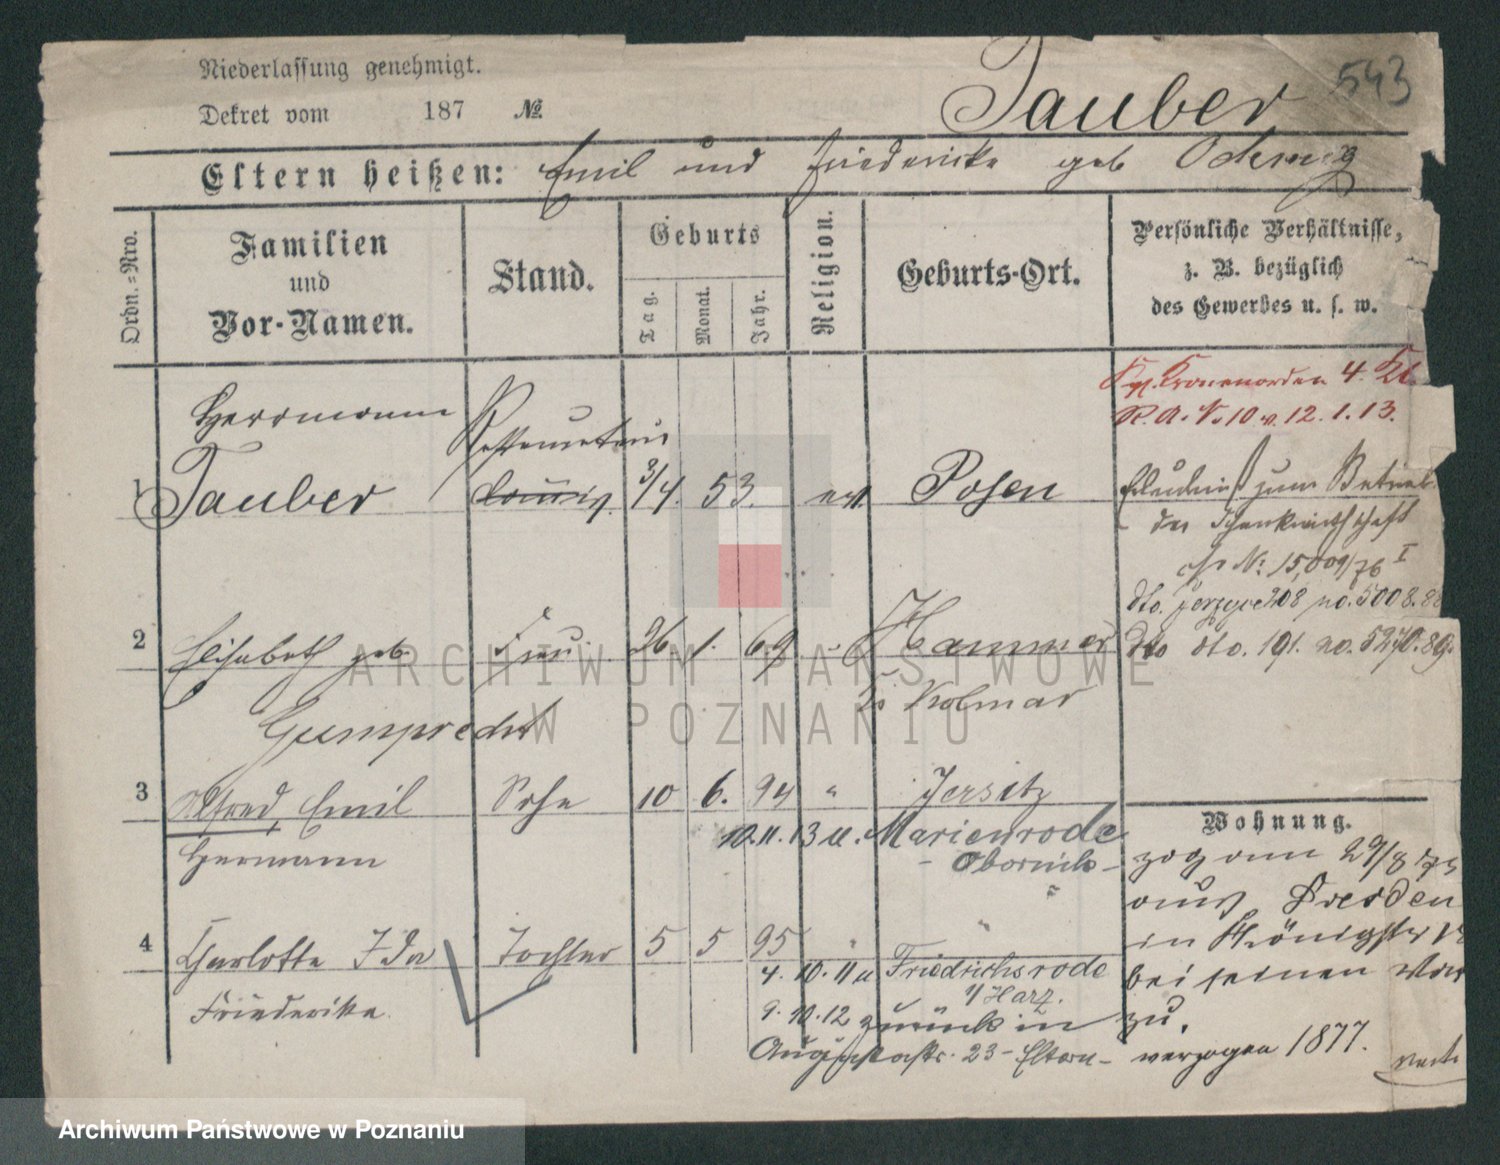 543
Niederlassung genehmigt.
Dekret vom 187 №
Tauber
Eltern heißen: Emil und Friedericke geb
Ordn.-Nro.
Familien
und
Vor-Namen.
Stand.
Geburts
Tag.
Monat.
Jahr.
Religion.
Geburts-Ort.
Persönliche Verhältnisse,
z. B. bezüglich
des Gewerbes u. s. w.
Kgl. Kronenorden 4. Kl.
R. A. V. 10 v. 12. 1. 13.
Herrmann
1 Tauber 3/4. 53. ev. Posen
zum Betrieb
der Schankwirthschaft
№: 15,009/76 I
dto. no. 5008.88
2 Elisabeth geb Frau 26 1. 69 " Hammer dto dto. 191. no. 89.
Gumprecht
Kolmar
3 Alfred, Emil Sohn 10 6. 94 " Jersitz
Hermann
10.11.13 u. Marienrode
- Obornik -
Wohnung.
zog am 29/8 75
aus Dresden
in
bei seinen
zu.
verzogen 1877.
4 Charlotte Ida Tochter 5 5 95 " "
Friederike
4. 10. 11 u Friedrichsrode
i/Harz.
9. 10. 12 zurück in
Augustastr. 23 - Eltern -
ARCHIWUM PAŃSTWOWE
W POZNANIU
Archiwum Państwowe w Poznaniu